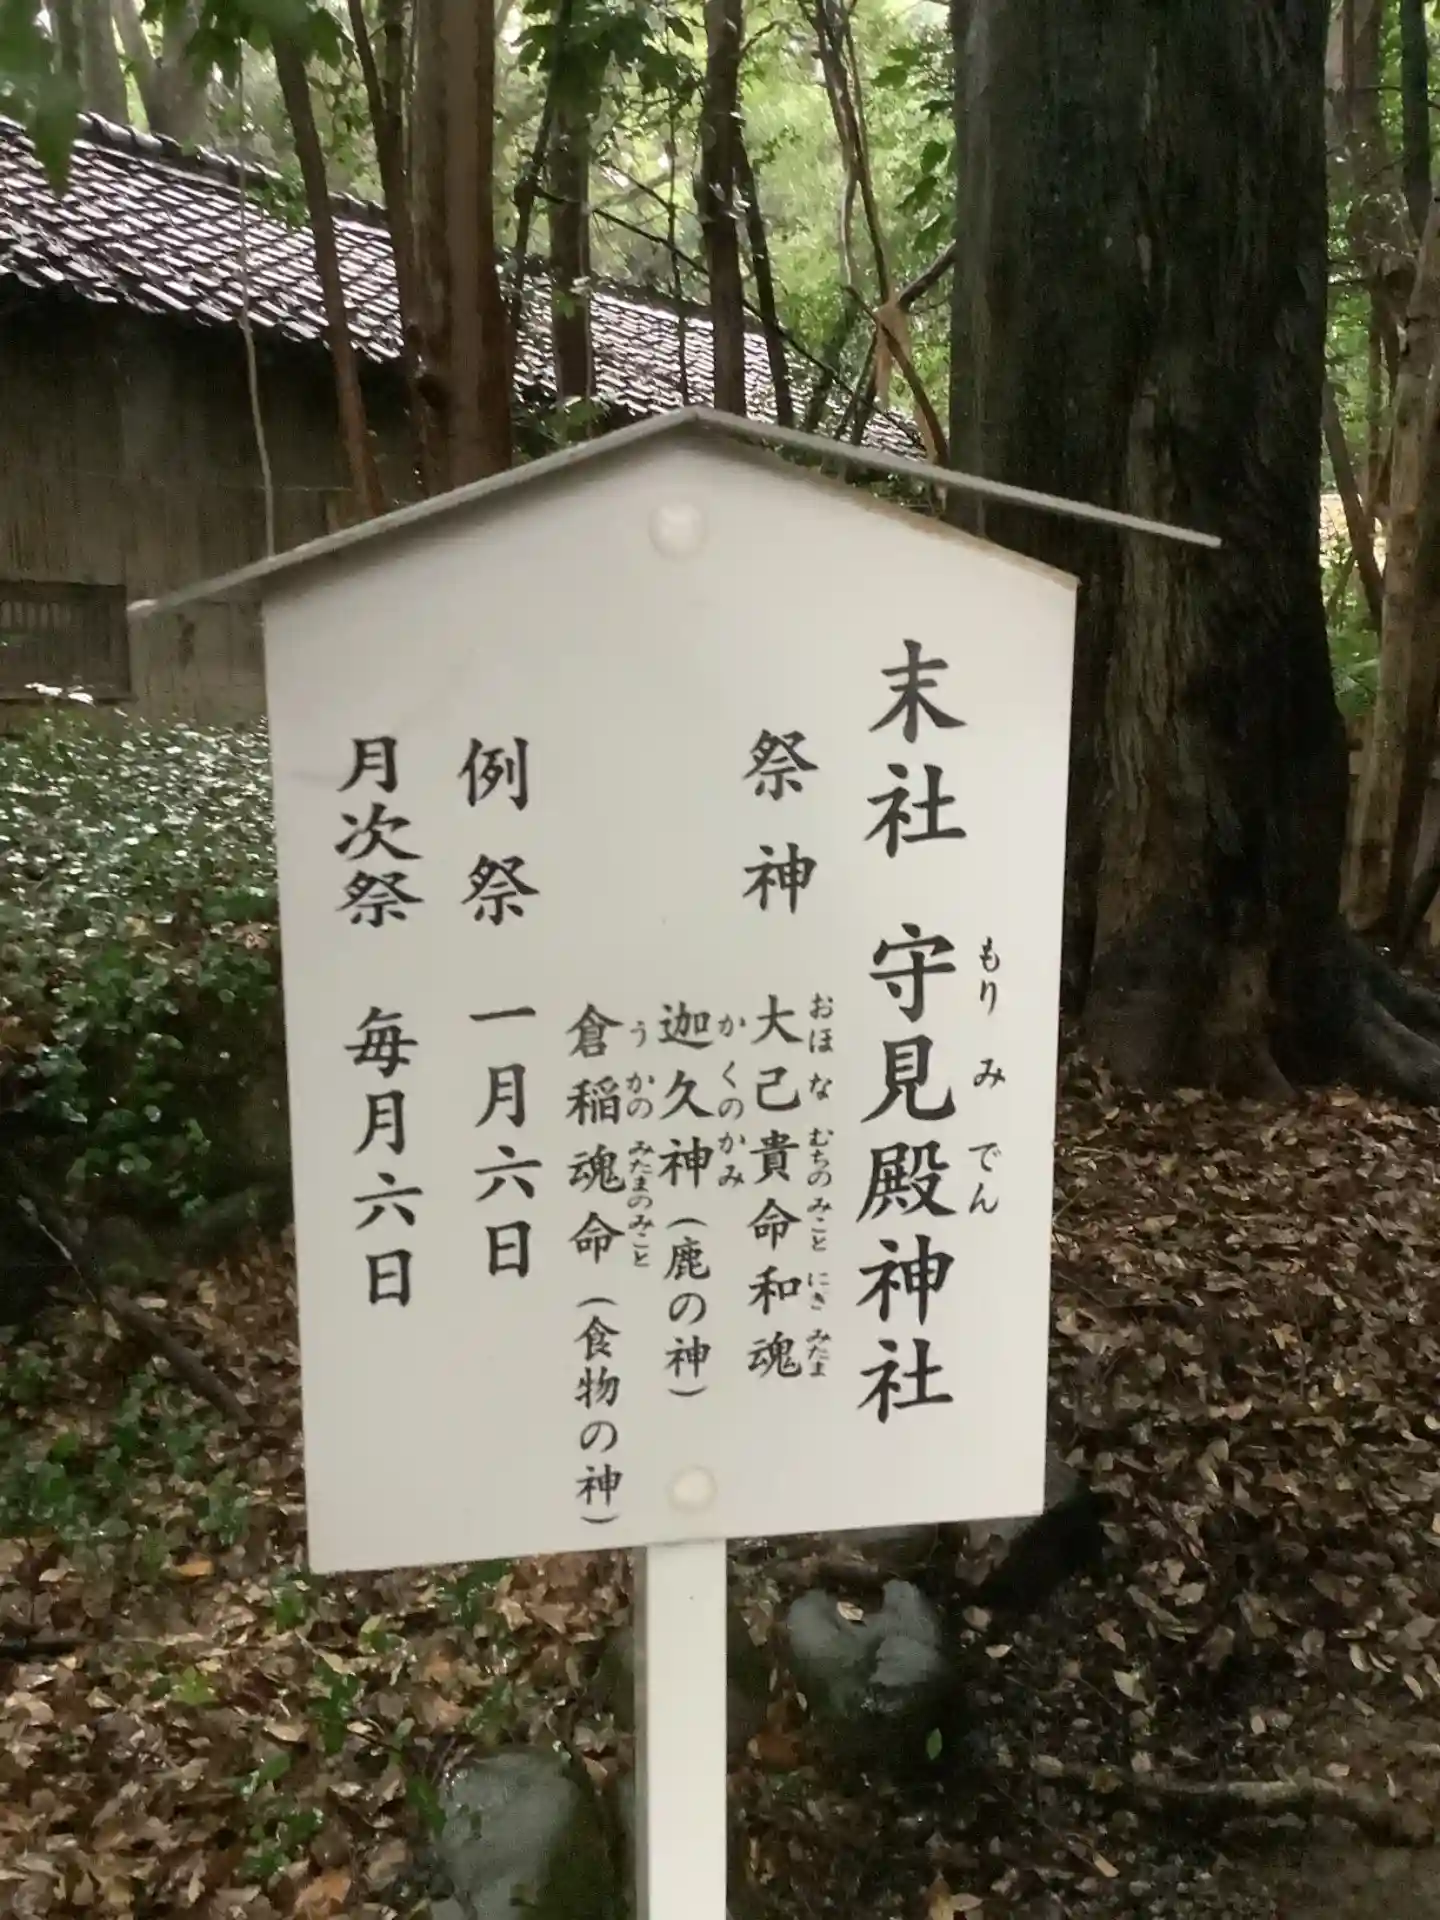 末社 守見殿神社
もりみでん
祭神
大己貴命和魂
おほなむちのみことにきみたま
迦久神（鹿の神）
かくのかみ
倉稲魂命（食物の神）
うかのみたまのみこと
例祭 一月六日
月次祭 毎月六日